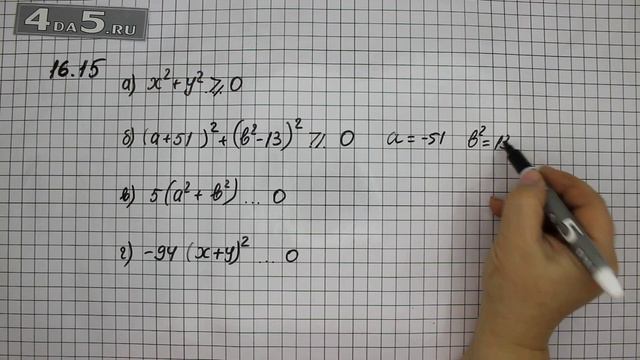 4DA5.RU
16.15
а) x² + y² ⩾ 0
б) (a+51)² + (b²-13)² ⩾ 0 a = -51 b² = 13
в) 5(a² + b²) ... 0
г) -94 (x+y)² ... 0
5